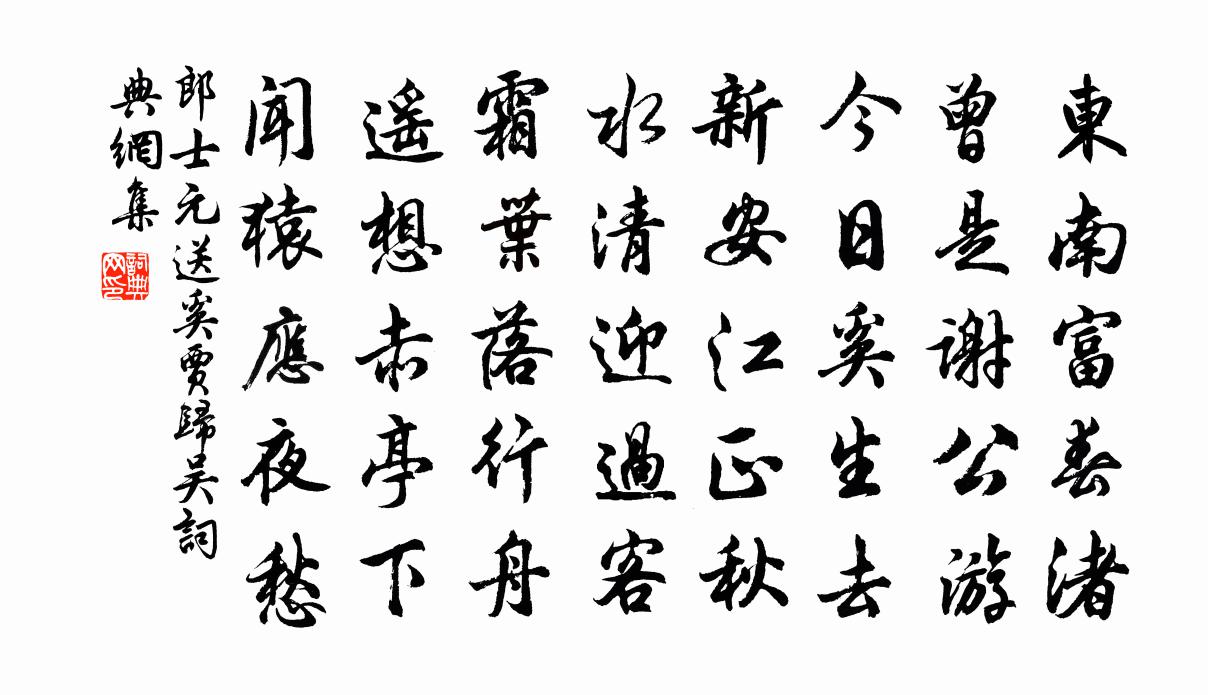 東南富春渚
曾是謝公游
今日奚生去
新安江正秋
水清迎過客
霜葉落行舟
遥想赤亭下
闻猿應夜愁
郎士元送奚賈歸吴詞
典網集
詞典
网印